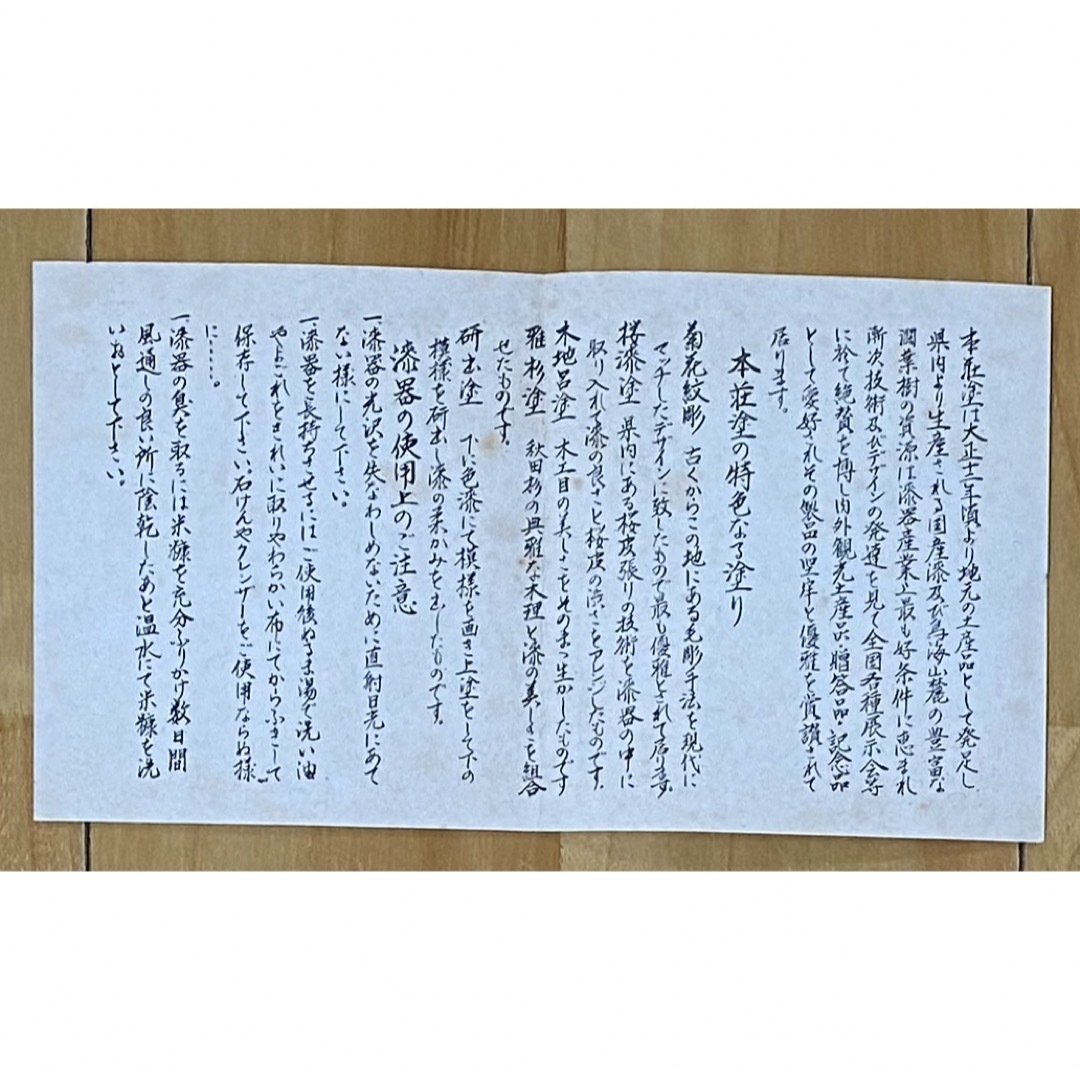 本荘塗は大正十二年頃より地元の土産品として発足し
県内より生産される国産漆及び鳥海山麓の豊富な
潤葉樹の資源は漆器産業上最も好条件に恵まれ
漸次技術及びデザインの発達を見て全国各種展示会等
に於て絶賛を博し内外観光土産品、贈答品、記念品
として愛好されその製品の堅牢と優雅を賞讃されて
居ります。
本荘塗の特色なる塗り
菊花紋彫 古くからこの地にある毛彫手法を現代に
マッチしたデザインに致したもので最も優雅とされて居ります。
桜漆塗 県内にある桜皮張りの技術を漆器の中に
取り入れて漆の良さと桜皮の渋さをアレンジしたものです。
木地呂塗 木工目の美しさをそのまゝ生かしたものです
雅杉塗 秋田杉の典雅な木理と漆の美しさを組合
せたものです。
研出塗 下に色漆にて模様を画き上塗をして下の
模様を研出し漆の柔かみを出したものです。
漆器の使用上のご注意
一、漆器の光沢を失なわしめないために直射日光にあて
ない様にして下さい。
一、漆器を長持ちさせるにはご使用後ぬるま湯で洗い油
やよごれをきれいに取りやわらかい布にてからぶきして
保存して下さい。石けんやクレンザーをご使用ならぬ様
に……。
一、漆器の臭を取るには米糠を充分ふりかけ数日間
風通しの良い所に陰乾したあと温水にて米糠を洗
いおとして下さい。